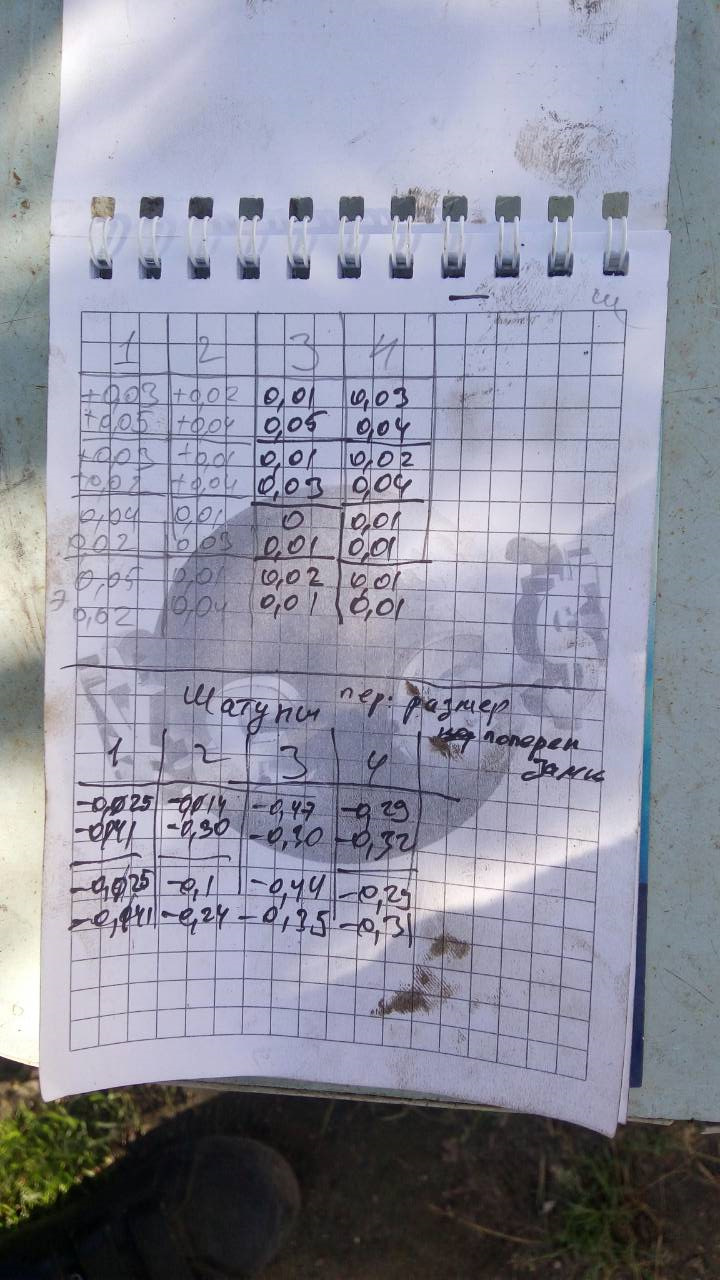 1 2 3 4
+0,03 +0,02 0,01 0,03
+0,05 +0,04 0,05 0,04
+0,03 +0,01 0,01 0,02
+0,02 +0,04 0,03 0,04
0,04 0,01 0 0,01
0,02 0,03 0,01 0,01
0,05 0,01 0,02 0,01
0,02 0,04 0,01 0,01
Шатуны пер: размер
поперек
Замки
1 2 3 4
-0,025 -0,014 -0,47 -0,29
-0,041 -0,30 -0,30 -0,32
-0,025 -0,1 -0,44 -0,29
-0,041 -0,24 -0,35 -0,31